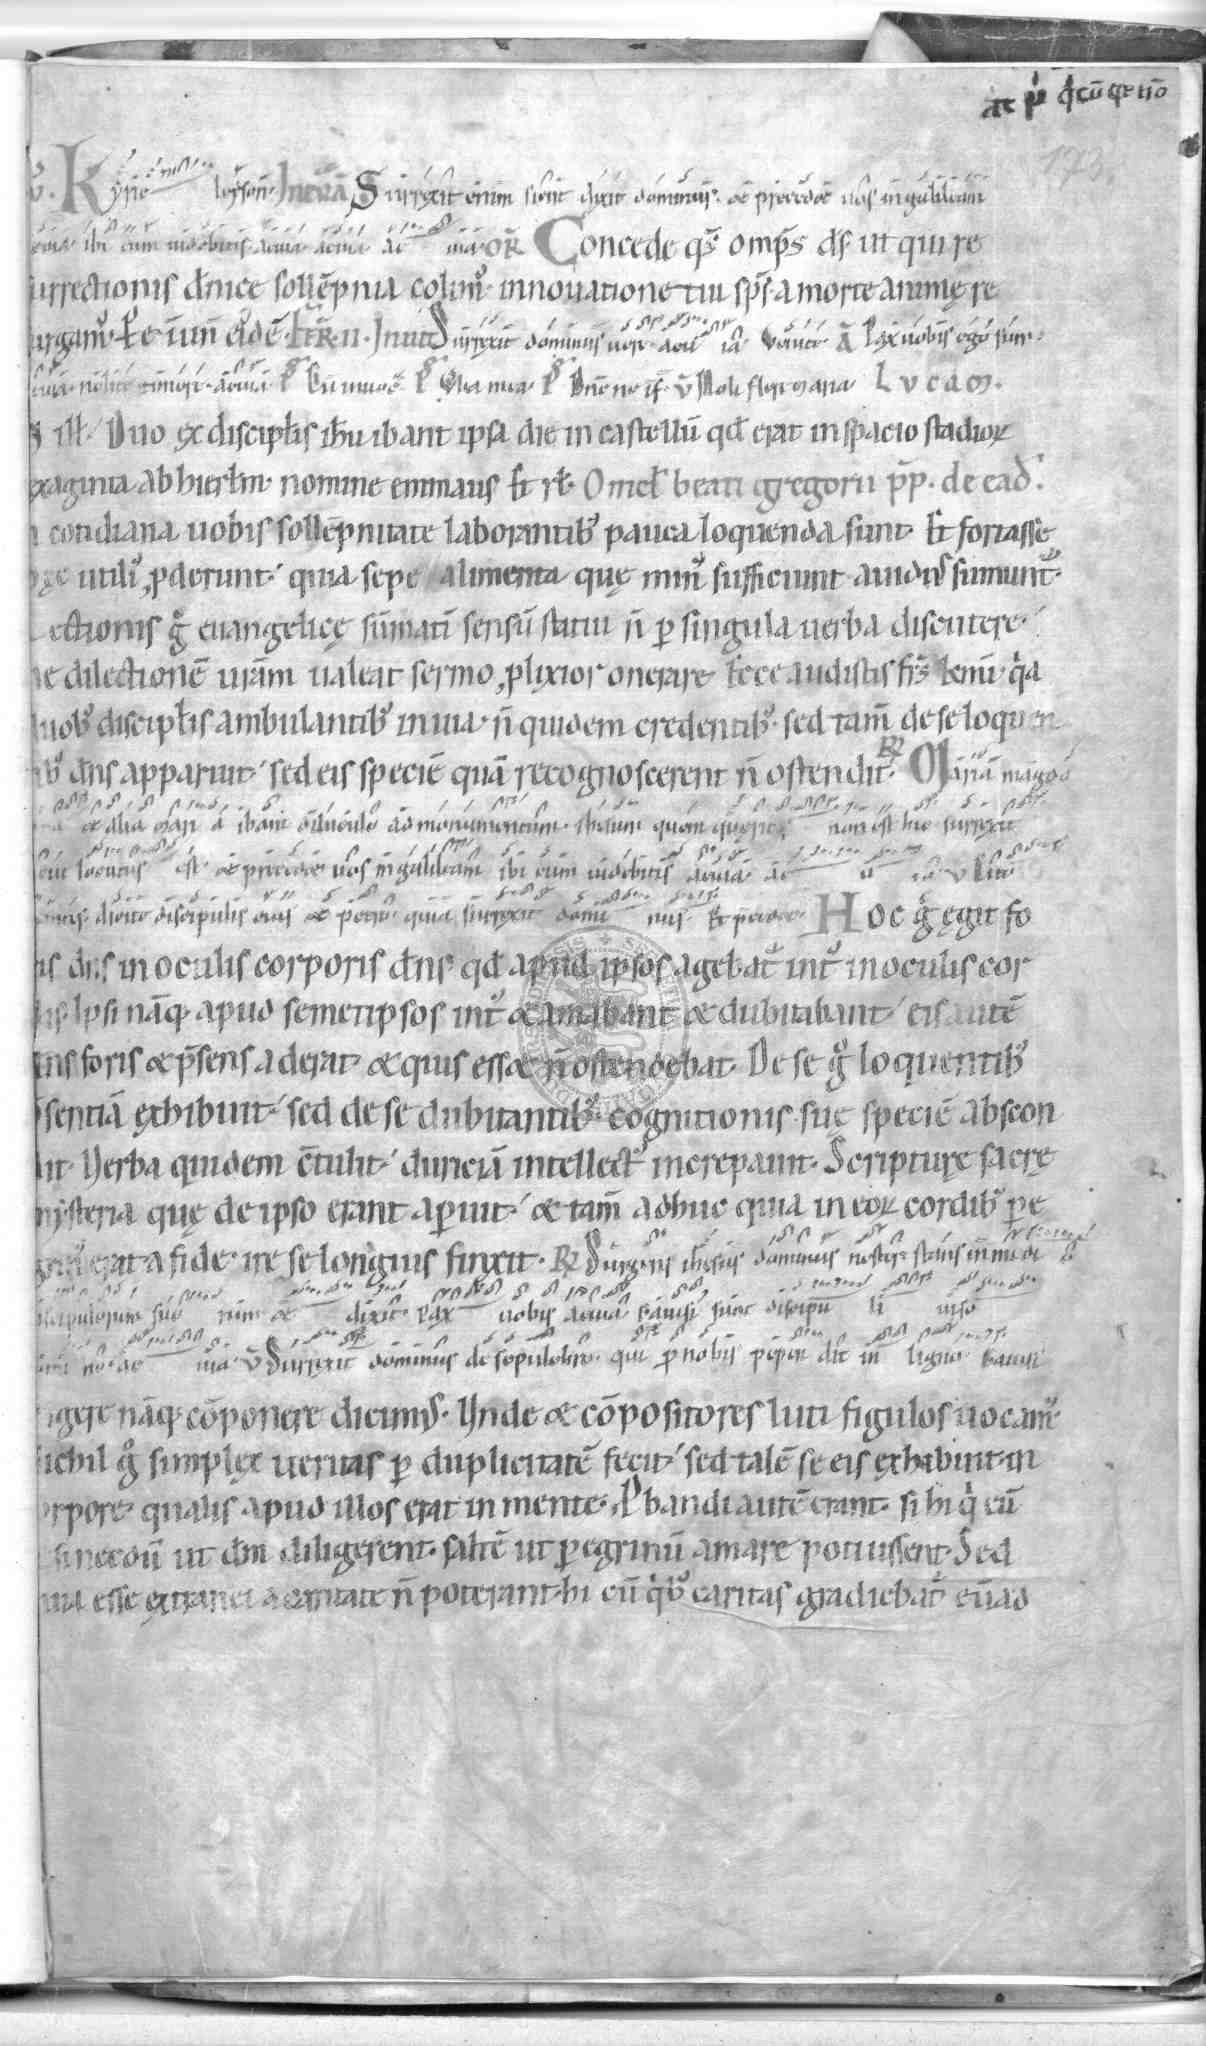 ac p̄ q̄cūq; tīo
173
V̄. Kyrie leyson. In euā Surrexit enim sicut dixit dominus. & precedet uos in galileam
aeuia. ibi eum uidebitis aeuia aeuia ae uia. OR̄ Concede qs̄ omps̄ ds̄ ut qui re
surrectionis dn̄ice sollēpnia colimꝰ. innouatione tui sps̄ a morte animę re
surgamꝰ. P̄ eūn̄ dē. FR̄. II. Inuit Surrexit dominus uere. aeu ia Venite. Ā Pax uobis ego sum.
aeuia. nolite timere. aeuia. Ps̄ Cū inuoc̄. Ps̄ Verba mea. Ps̄ Dn̄e ne īf. V̄ Noli flere maria. LVCAM.
N ILL̄. Duo ex discipl̄is ih̄u ibant ipsa die in castellū qd̄ erat in spacio stadioꝝ
sexaginta ab hierl̄m. nomine emmaus. Et rl̄. Omel̄ beati gregorii pp̄. de ead̄.
In cotidiana uobis sollēpnitate laborantibꝰ pauca loquenda sunt. Et fortasse
hęc utiliꝰ ꝓderunt. quia sepe alimenta quę minꝰ sufficiunt auidiꝰ sumunt.
Lectionis g̊ euangelicę sūmatī sensū statui n̄ ꝑ singula uerba discutere.
ne dilectionē urām ualeat sermo ꝓlixior onerare. Ecce audistis frs̄ kmī. q̇a
duobꝰ discipl̄is ambulantibꝰ in uia. n̄ quidem credentibꝰ. sed tam̄ de se loquen
tibꝰ dn̄s apparuit. sed eis speciē quā recognoscerent n̄ ostendit. R̄ Maria magda
& alia maria ibant diluculo ad monumentum. ihesum quem queritis non est hic surrexit
sicut locutus est & precedet uos in galileam ibi eum uidebitis aeuia ae u ia V̄ Cito
euntes. dicite discipulis eius & petro. quia surrexit dominus. Et precedet. Hoc g̊ egit fo
ris dn̄s in oculis corporis dn̄s. qd̄ apud ipsos agebat intꝰ in oculis cor
dis. Ipsi nāq; apud semetipsos intꝰ & amabant & dubitabant. eis autē
dn̄s foris & p̄sens aderat. & quis ess& n̄ ostendebat. De se g̊ loquentibꝰ
p̄sentiā exhibuit. sed de se dubitantibꝰ. cognitionis sue speciē abscon
dit. Verba quidem c̄tulit. duriciā intellectꝰ increpauit. Scripturę sacrę
mysteria quę de ipso erant aperuit. & tam̄ adhuc quia in eoꝝ cordibꝰ pe
grinꝰ erat a fide. ire se longius finxit. R̄ Surgens ihesus dominus noster stans in medio
discipulorum suorum & dixit. Pax uobis aeuia. Gauisi sunt discipuli uiso
domino. ae uia V̄ Surrexit dominus de sepulchro. qui ꝓ nobis pependit in ligno. Gauisi
Fingere nāq; cōponere dicimꝰ. Vnde & cōpositores luti figulos uocamꝰ.
Nichil g̊ simplex ueritas ꝑ duplicitatē fecit. sed talē se eis exhibuit in
corpore. qualis apud illos erat in mente. Ꝓbandi autē erant. si hi q̇ eū
& si necdū ut dm̄ diligerent. saltē ut pegrinū amare potuissent. Sed
quia esse extranei a caritate n̄ poterant hi cū q̇bꝰ caritas gradiebat. eū ad